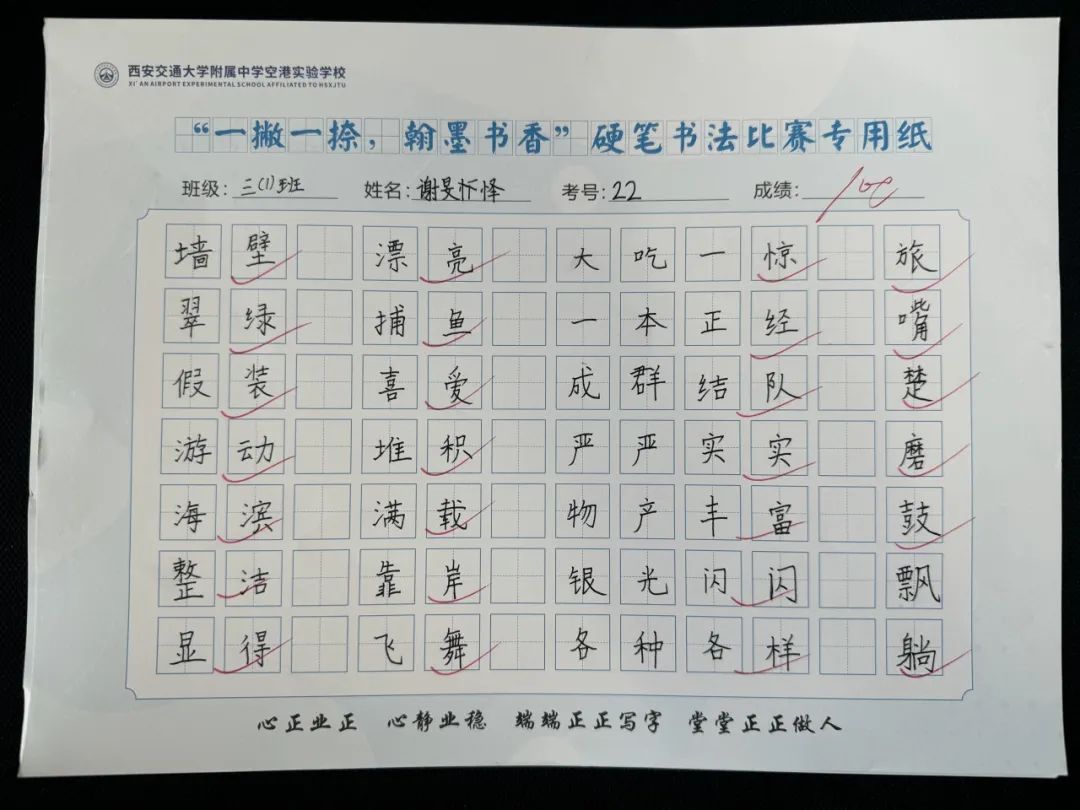 西安交通大学附属中学空港实验学校
XI'AN AIRPORT EXPERIMENTAL SCHOOL AFFILIATED TO HSXJTU
“一撇一捺，翰墨书香”硬笔书法比赛专用纸
班级：三(1)班 姓名：谢旻忻怿 考号：22 成绩：100
墙壁 漂亮 大吃一惊 旅
翠绿 捕鱼 一本正经 嘴
假装 喜爱 成群结队 楚
游动 堆积 严严实实 磨
海滨 满载 物产丰富 鼓
整洁 靠岸 银光闪闪 飘
显得 飞舞 各种各样 躺
心正业正 心静业稳 端端正正写字 堂堂正正做人